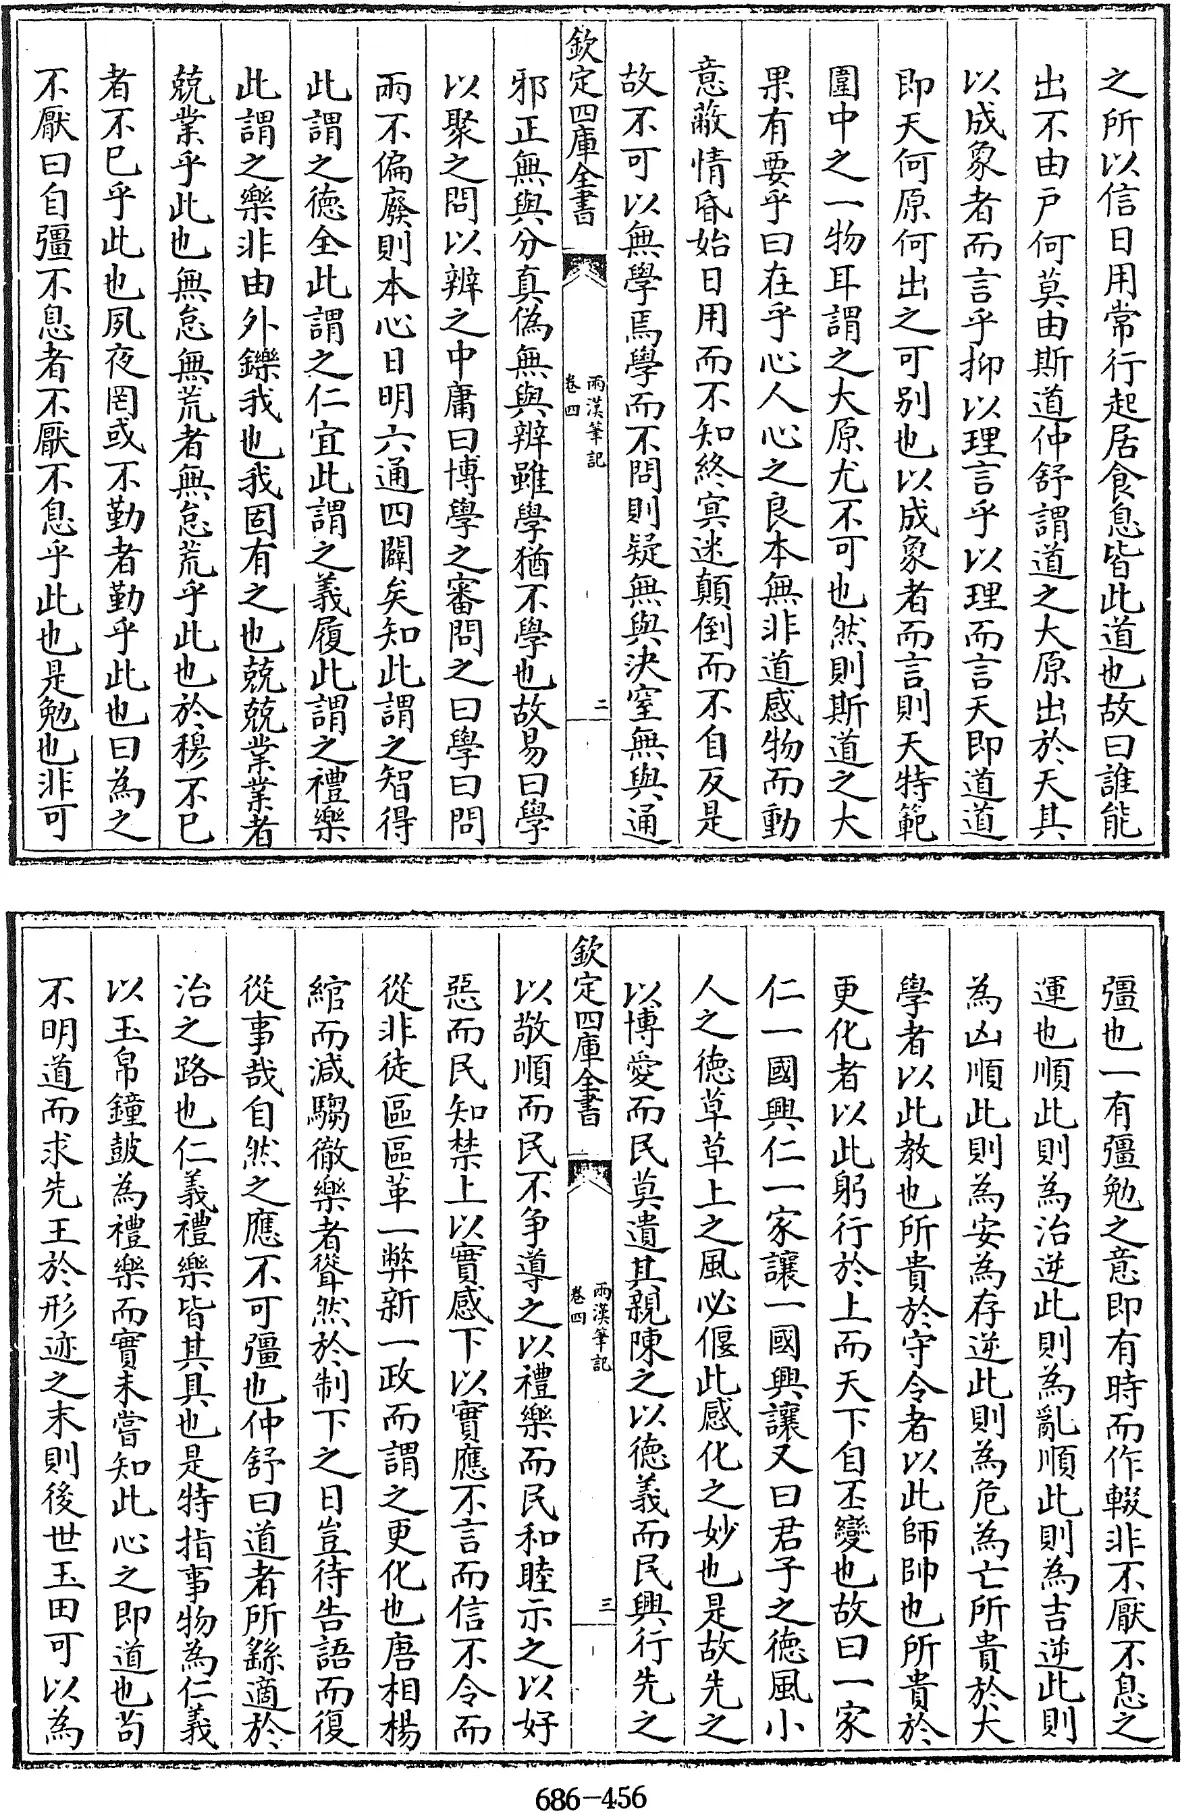 之所以信日用常行起居食息皆此道也故曰誰能
出不由戸何莫由斯道仲舒謂道之大原出於天其
以成象者而言乎抑以理言乎以理而言天即道道
即天何原何出之可别也以成象者而言則天特範
圍中之一物耳謂之大原尤不可也然則斯道之大
果有要乎曰在乎心人心之良本無非道感物而動
意蔽情昏始日用而不知終㝠迷顛倒而不自反是
故不可以無學焉學而不問則疑無與决窒無與通
欽定四庫全書
兩漢筆記
卷四
二
邪正無與分真偽無與辨雖學猶不學也故易曰學
以聚之問以辨之中庸曰博學之審問之曰學曰問
兩不偏廢則本心日明六通四闢矣知此謂之智得
此謂之徳全此謂之仁宜此謂之義履此謂之禮樂
此謂之樂非由外鑠我也我固有之也兢兢業業者
兢業乎此也無怠無荒者無怠荒乎此也於穆不已
者不已乎此也夙夜罔或不勤者勤乎此也曰為之
不厭曰自彊不息者不厭不息乎此也是勉也非可
彊也一有彊勉之意即有時而作輟非不厭不息之
運也順此則為治逆此則為亂順此則為吉逆此則
為凶順此則為安為存逆此則為危為亡所貴於大
學者以此教也所貴於守令者以此師帥也所貴於
更化者以此躬行於上而天下自丕變也故曰一家
仁一國興仁一家讓一國興讓又曰君子之徳風小
人之徳草草上之風必偃此感化之妙也是故先之
以博愛而民莫遺其親陳之以徳義而民興行先之
欽定四庫全書
兩漢筆記
卷四
三
以敬順而民不争導之以禮樂而民和睦示之以好
惡而民知禁上以實感下以實應不言而信不令而
從非徒區區革一弊新一政而謂之更化也唐相楊
綰而減騶徹樂者聳然於制下之日豈待告語而復
從事哉自然之應不可彊也仲舒曰道者所繇適於
治之路也仁義禮樂皆其具也是特指事物為仁義
以玉帛鐘鼓為禮樂而實未嘗知此心之即道也苟
不明道而求先王於形迹之末則後世王田可以為
686-456